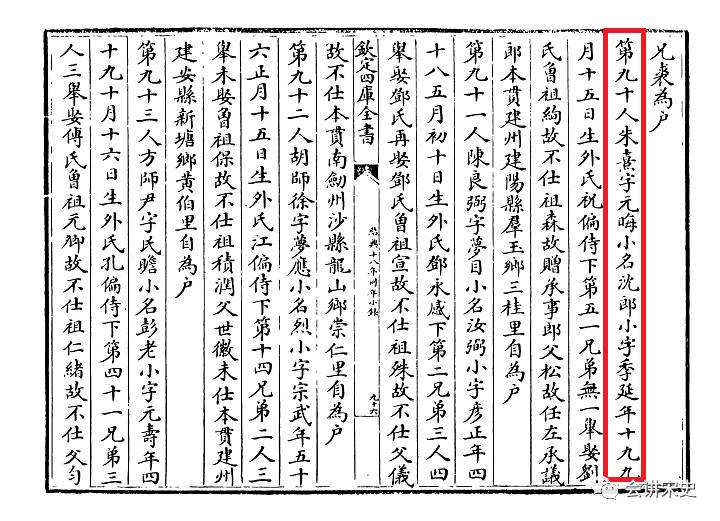 兄棗為户
第九十人朱熹字元晦小名沈郎小字季延年十九九
月十五日生外氏祝偏侍下第五一兄弟無一舉娶劉
氏曾祖絢故不仕祖森故贈承事郎父松故任左承議
郎本貫建州建陽縣羣玉鄉三桂里自為户
第九十一人陳良弼字夢目小名汝弼小字彦正年四
十八五月初十日生外氏鄧永感下第二兄弟三人四
舉娶鄧氏再娶鄧氏曾祖宣故不仕祖殊故不仕父儀
欽定四庫全書
紹興十八年同年小錄
九十六
故不仕本貫南劒州沙縣龍山鄉崇仁里自為户
第九十二人胡師徐字夢應小名烈小字宗武年五十
六正月十五日生外氏江偏侍下第十四兄弟二人三
舉未娶曾祖保故不仕祖積潤父世徽未仕本貫建州
建安縣新塘鄉黄伯里自為户
第九十三人方師尹字民瞻小名彭老小字元壽年四
十九十月十六日生外氏孔偏侍下第四十一兄弟三
人三舉娶傅氏曾祖元御故不仕祖仁緒故不仕父匀
会讲宋史